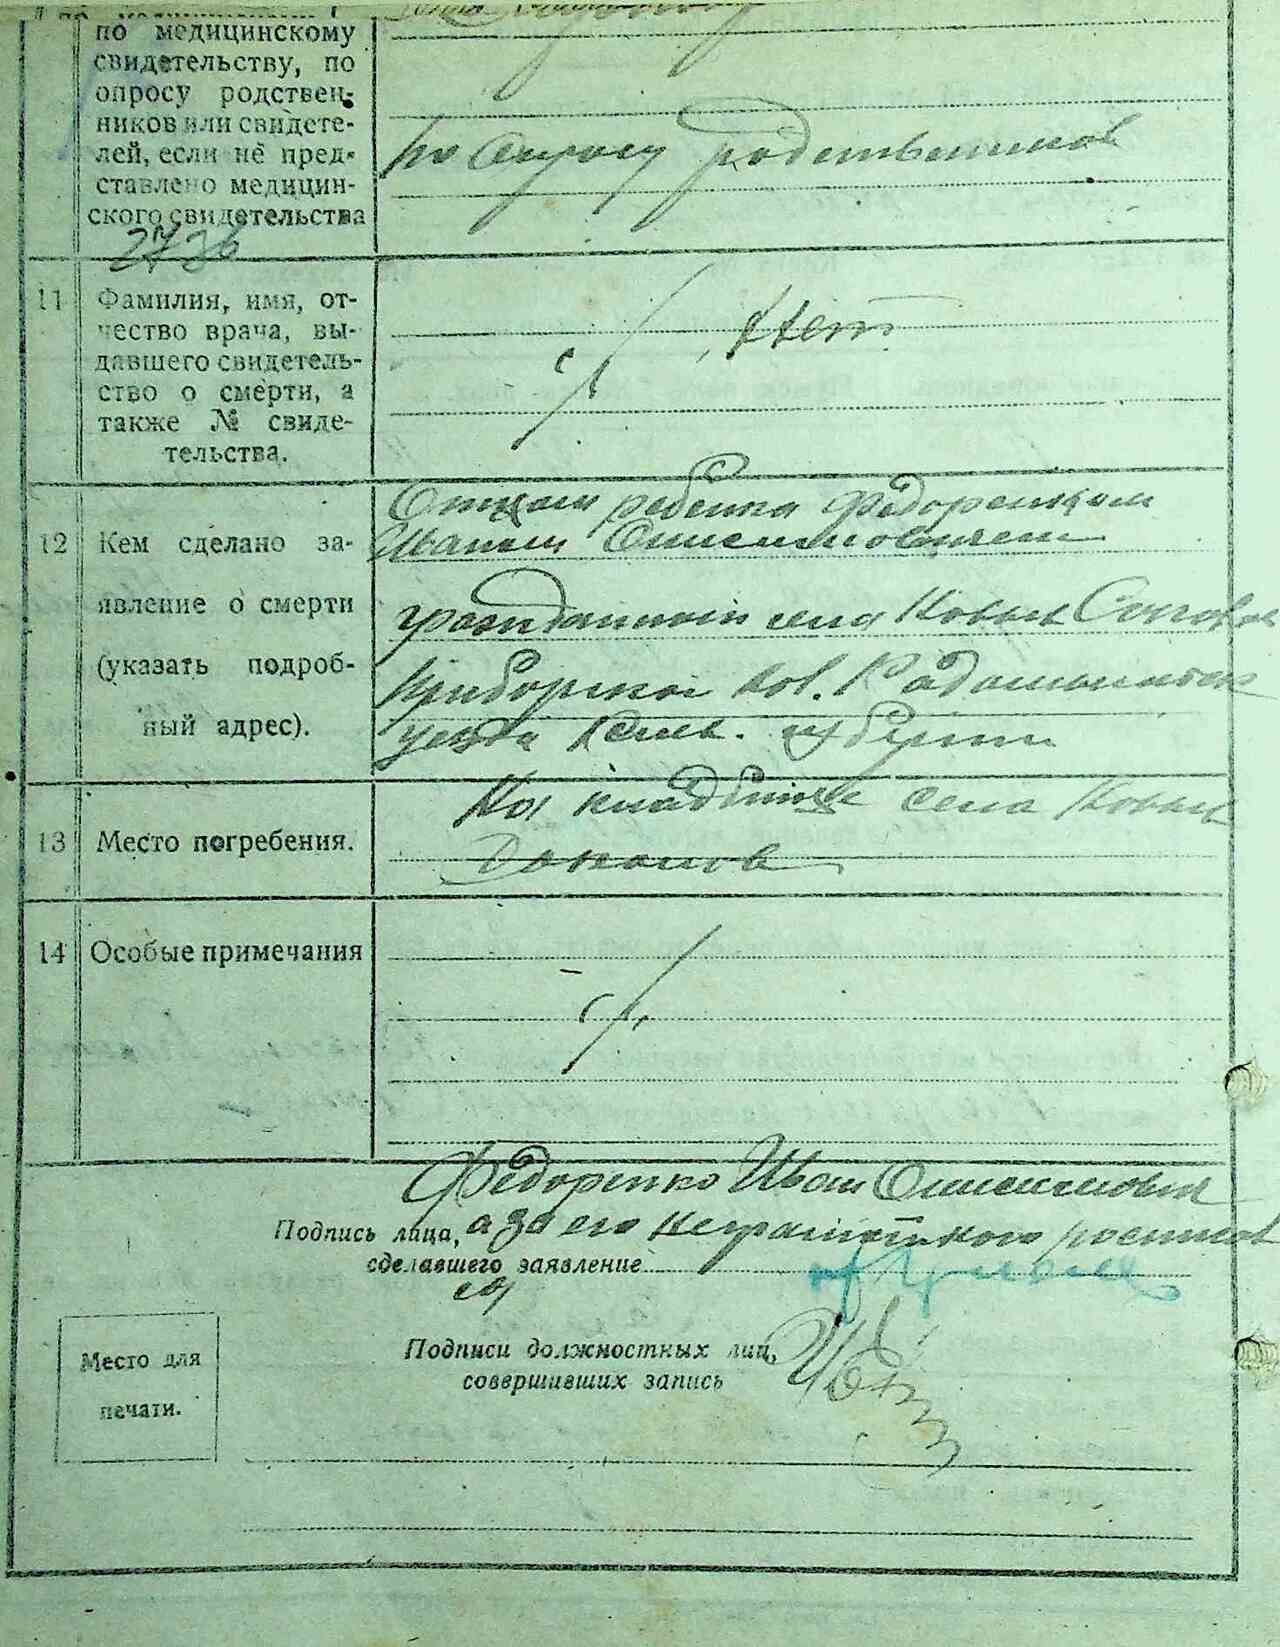 по медицинскому
свидетельству, по
опросу родствен-
ников или свидете-
лей, если не пред-
ставлено медицин-
ского свидетельства
По опросу родственников
11 Фамилия, имя, от-
чество врача, вы-
давшего свидетель-
ство о смерти, а
также № свиде-
тельства.
Нет
12 Кем сделано за-
явление о смерти
(указать подроб-
ный адрес).
Отцом ребенка Федоренком
Иваном
гражданином села Новых
вол. Радомысльск
уезда Киев. губернии
13 Место погребения.
На кладбище села Новых
14 Особые примечания
Федоренко Иван
Подпись лица, а за его неграмотного
сделавшего заявление
Подписи должностных лиц,
совершивших запись
Место для
печати.